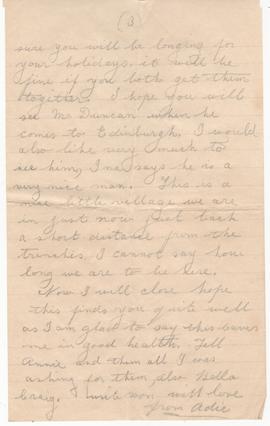 (3)
sure you will be longing for
your holidays. it will be
fine if you both get them
togitter. I hope you will
see Mr Duncan when he
comes to Edinburgh, I would
also like very much to
see him, Ina says he is a
very nice man. This is a
nice little village we are
in just now just back
a short distance from the
trenches, I cannot say how
long we are to be here.
Now I will close hope
this finds you quite well
as I am glad to say this leaves
me in good health. Tell
Annie and them all I was
asking for them also Bella
Craig. write soon with love
from Adie